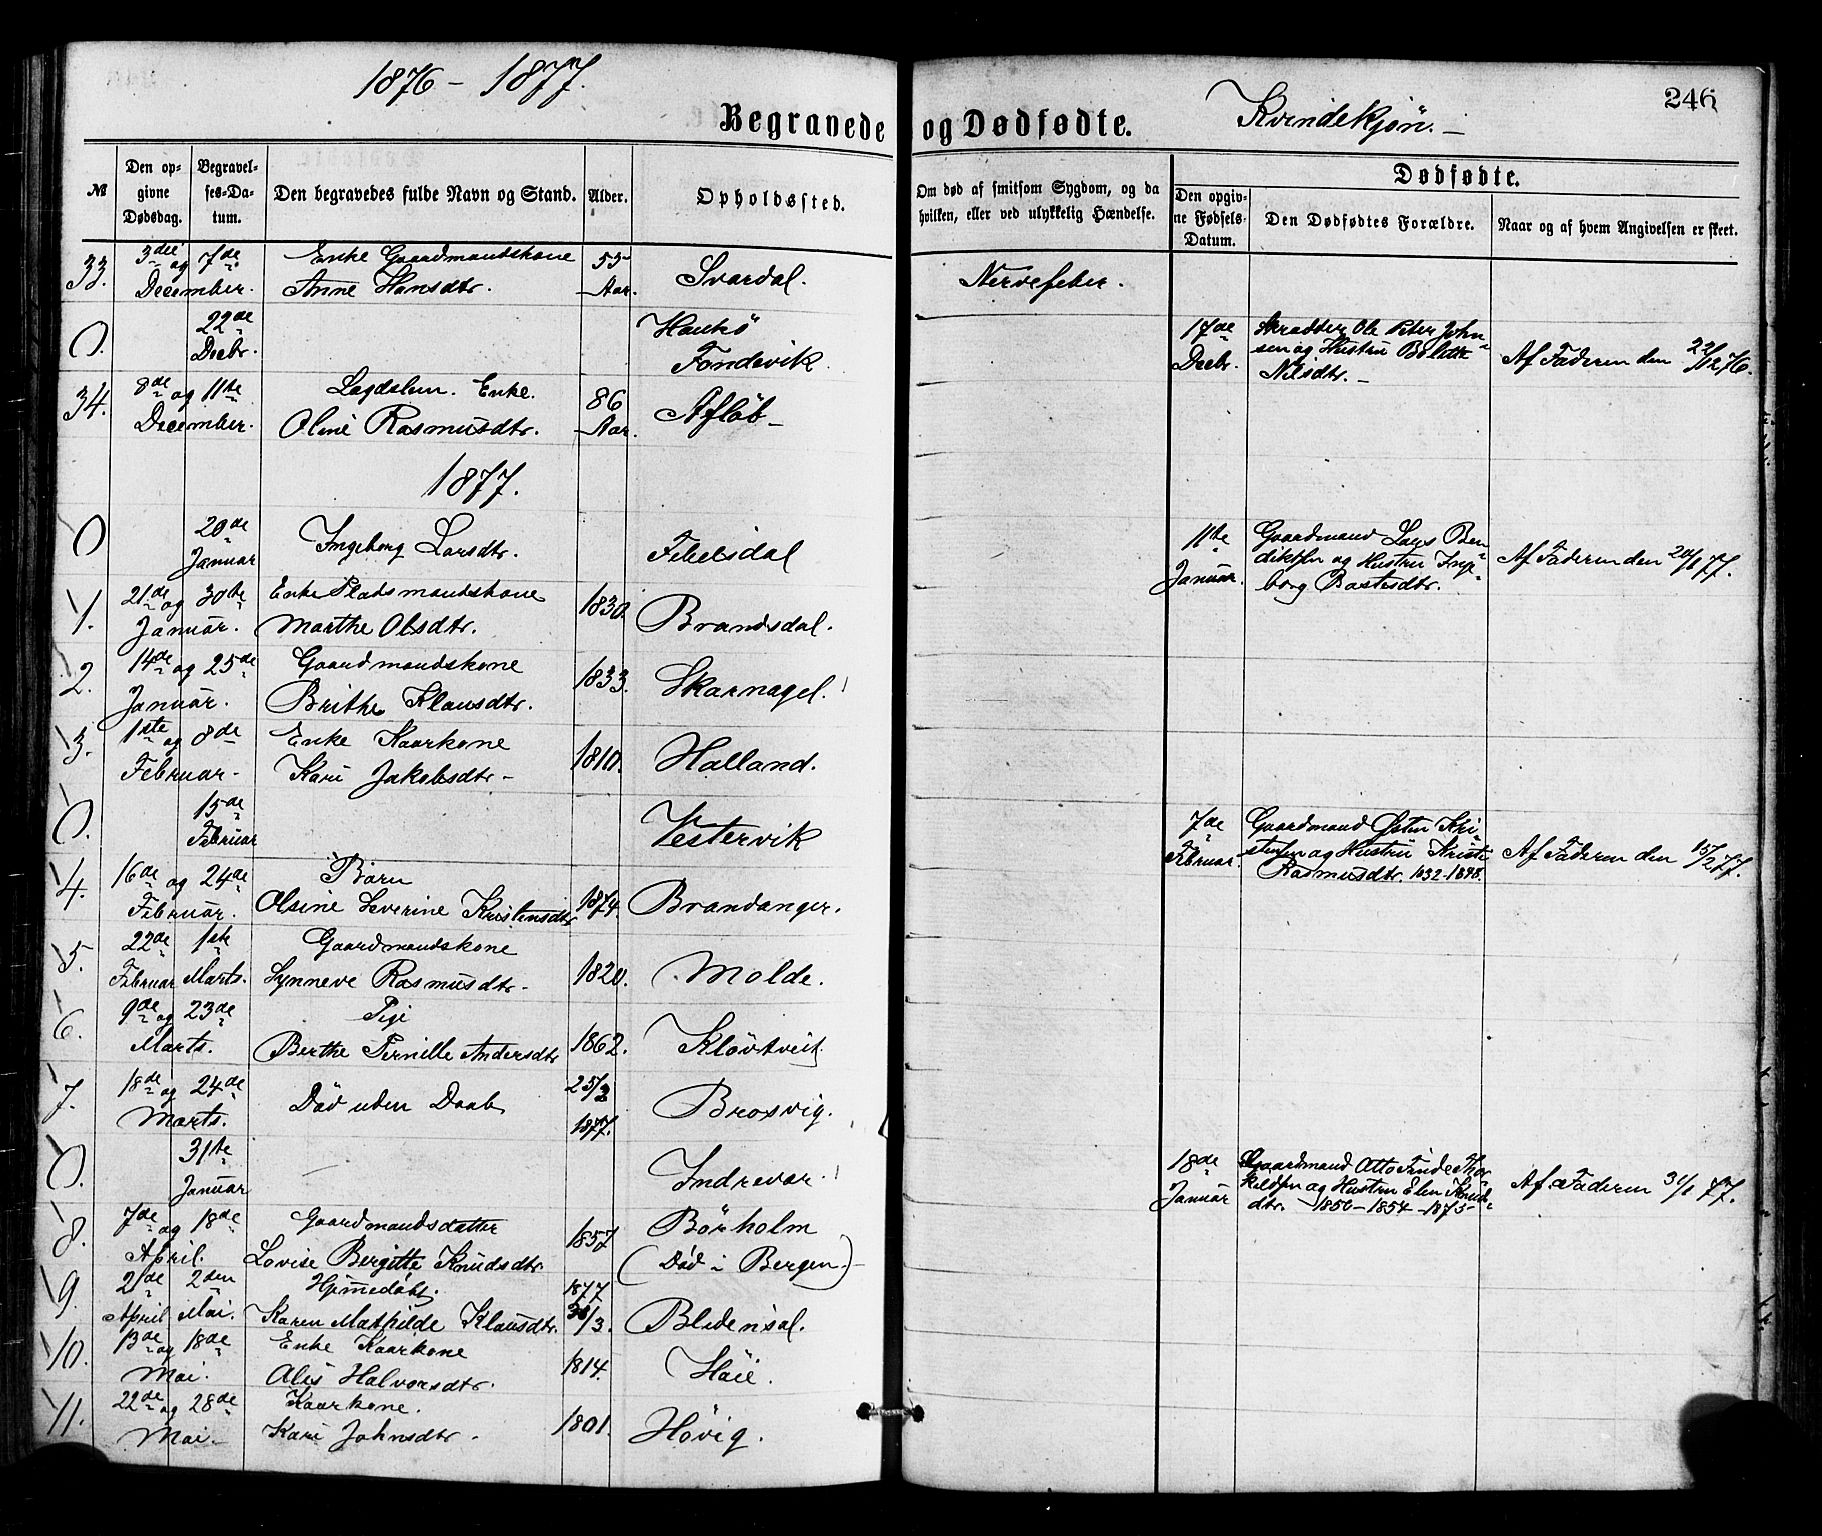 1876 - 1877.
Begravede og Dødfødte.
Kvindekjøn. -
246
№
Den opgivne Dødsdag.
Begravelses-Datum.
Den begravedes fulde Navn og Stand.
Alder.
Opholdssted.
Om død af smitsom Sygdom, og da
hvilken, eller ved ulykkelig Hændelse.
Dødfødte.
Den opgivne Fødsels-Datum.
Den Dødfødtes Forældre.
Naar og af hvem Angivelsen er skeet.
33. 3die og 7de December. Enke Gaardmandskone
Anne Hansdtr. 55 Aar. Svardal. Nervefeber.
0. 22de Decbr.
Fondevik.
17de Decbr. Ole Peter John-
sen og Hustru
Nilsdtr. -
Af Faderen den 22/12 76.
34. 8de og 11te December. Enke.
Oline Rasmusdtr. 86 Aar. Afløb -
1877.
0 20de Januar Ingeborg Larsdtr. Febelsdal
11te Januar. Gaardmand Lars Ben-
diktsen og Hustru Inge-
borg Bastesdtr.
Af Faderen den 20/1 77.
1. 21de og 30te Januar. Enke Pladsmandskone
Marthe Olsdtr. 1830. Brandsdal.
2. 14de og 25de Januar. Gaardmandskone
Brithe Klausdtr. 1833. Skarnagel.
3. 1ste og 8de Februar - Enke Kaarkone
Kari Jakobsdtr - 1810. Halland.
0. 15de Februar Vestervik
7de Februar. Gaardmand Østen Kri-
stensen og Hustru
Rasmusdtr.
Af Faderen den 15/2 77.
4. 16de og 24de Februar. Barn
Olsine Severine Kristensdtr 1874. Brandanger.
5. 22de Februar 1ste Marts. Gaardmandskone
Synneve Rasmusdtr - 1820. Molde.
6. 9de og 23de Marts. Pige
Berthe Pernille Andersdtr 1862. Kløvtveit.
7. 18de og 24de Marts. Død uden Daab 25/2 1877. Brosvig.
0. 31te Januar Indrevær.
18de Januar Gaardmand Otto Thor-
kildsen og Hustru Elen Knuds-
dtr. - 1850 - 1854 - 1873 -
Af Faderen 31/1 77.
8. 7de og 18de April. Gaardmandsdatter
Lovise Bergitte Knudsdtr. 1857 Børholm
(Død i Bergen.) -
9. 21de April 2den Mai. Hjemmedøbt.
Karen Mathilde Klausdtr. 1877 /3. Blidensol.
10. 13de og 18de Mai. Enke Kaarkone
Alis Halvorsdtr. 1814. Høie.
11. 22de og 28de Mai - Kaarkone.
Kari Johnsdtr. 1801. Høvig.